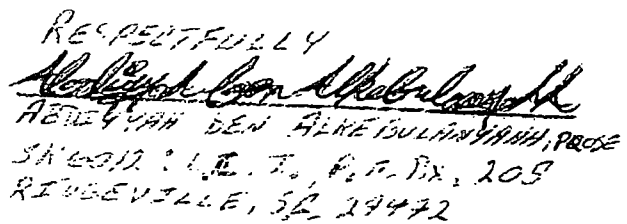 RESPECTFULLY
ABDIYYAH BEN ALKEBULANYAHH, PROSE
L.C.I., P.O. BX. 205
RIDGEVILLE, SC, 29472